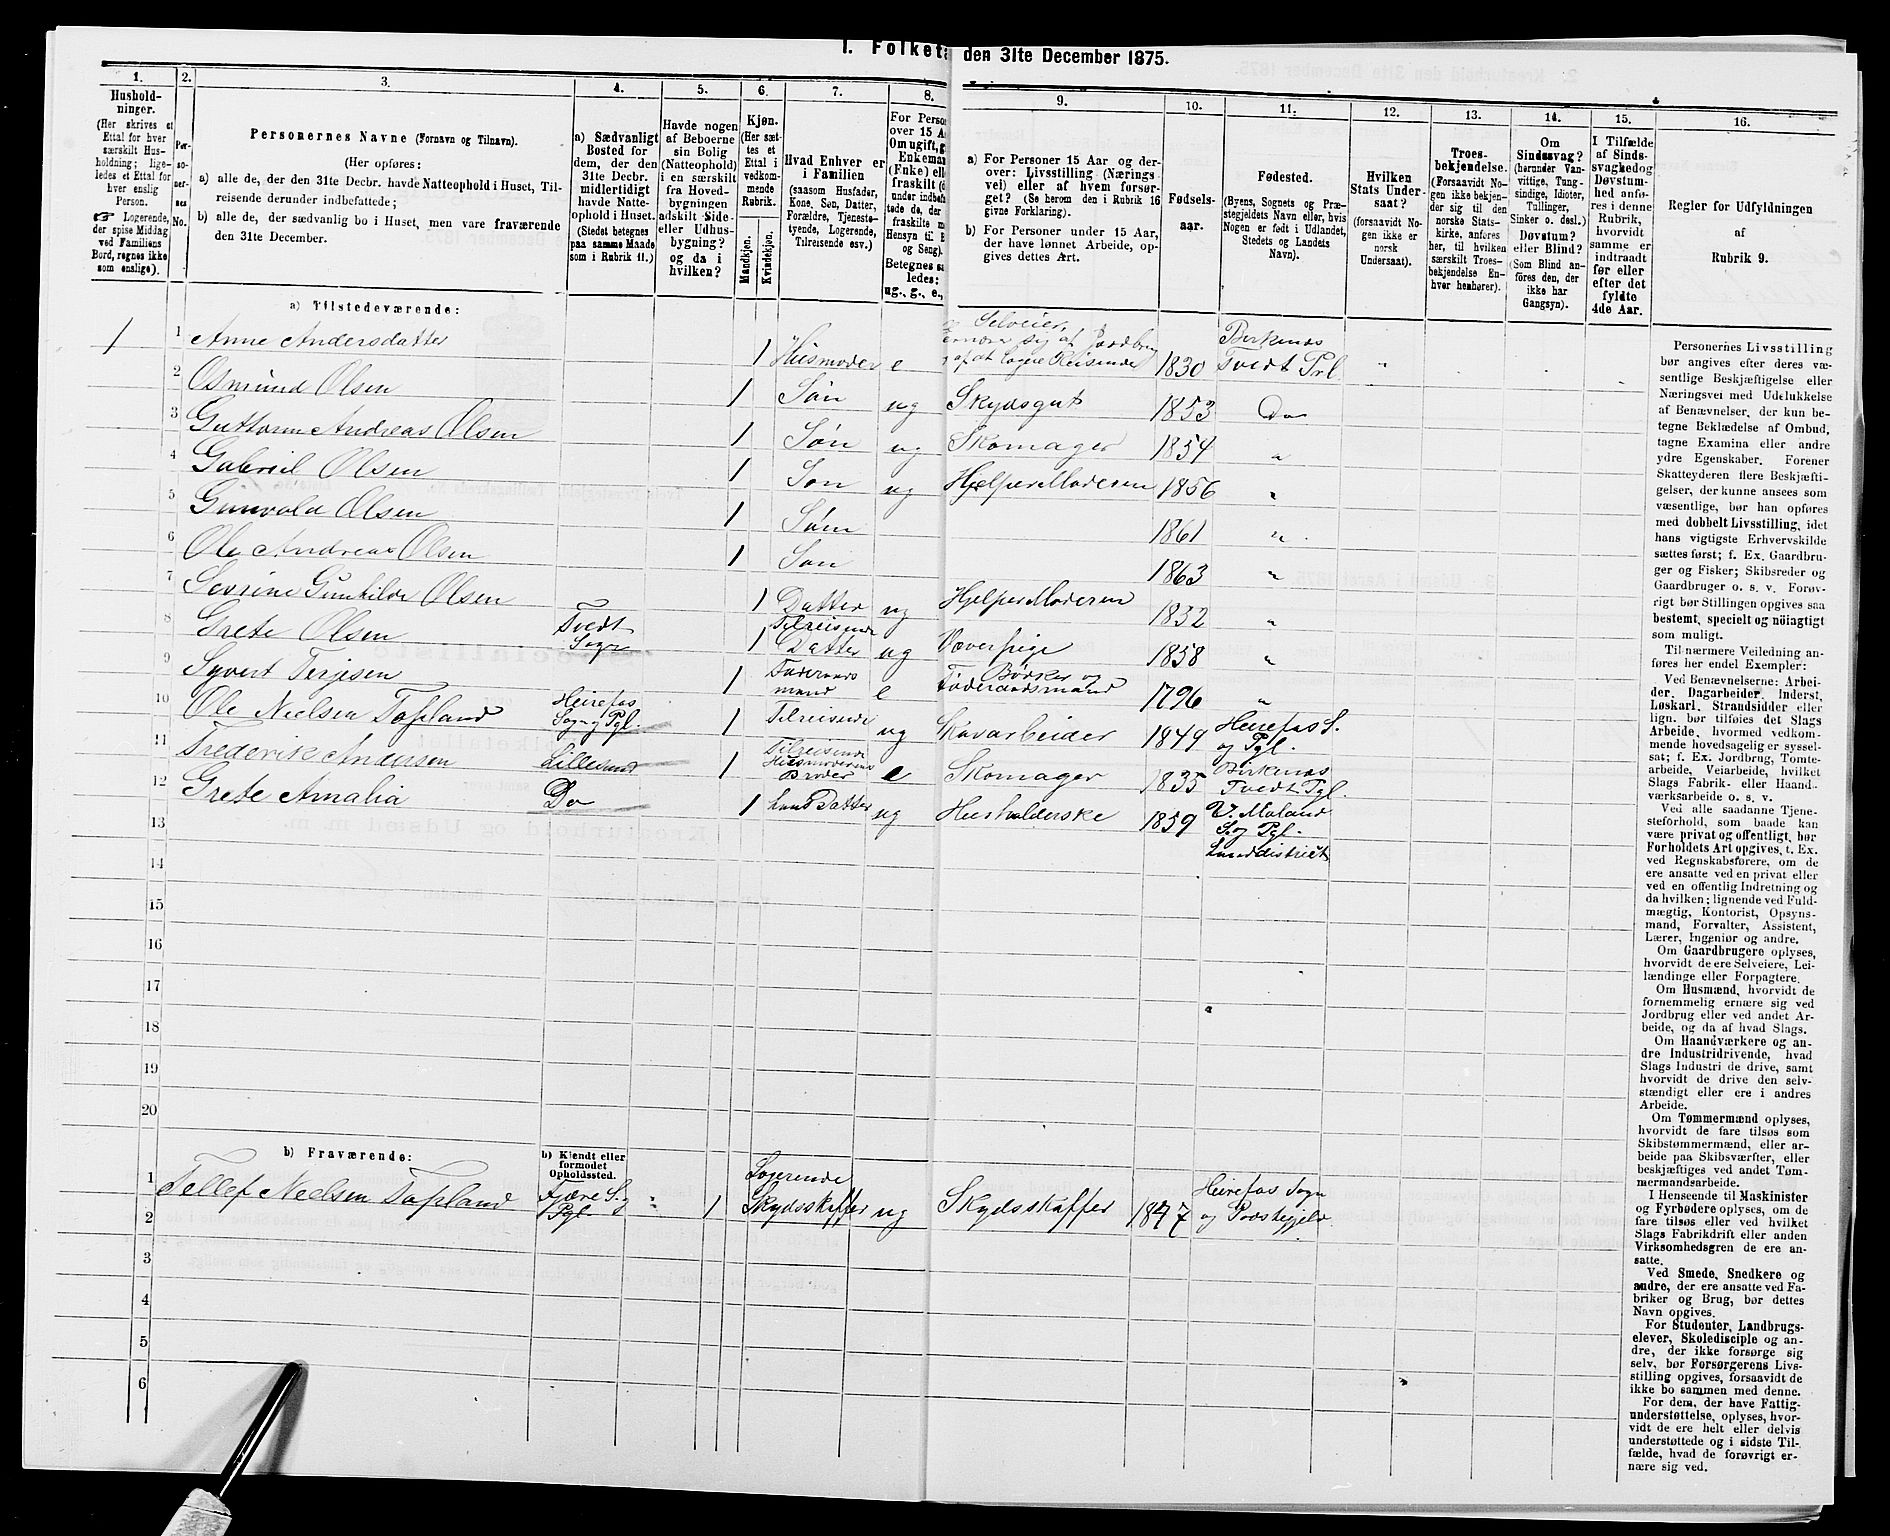 1. Folketæ den 31te December 1875.
1. 2. 3. 4. 5. 6. 7. 8. 9. 10. 11. 12. 13. 14. 15. 16.
Hushold-
ninger.
(Her skrives et
Ettal for hver
særskilt Hus-
holdning; lige-
ledes et Ettal for
hver enslig
Person.
☞ Logerende,
der spise Middag
ved Familiens
Bord, regnes ikke
som enslige).
Per-
so-
ner-
nes
No.
Personernes Navne (Fornavn og Tilnavn).
(Her opføres:
a) alle de, der den 31te Decbr. havde Natteophold i Huset, Til-
reisende derunder indbefattede;
b) alle de, der sædvanlig bo i Huset, men vare fraværende
den 31te December.
a) Sædvanligt
Bosted for
dem, der den
31te Decbr.
midlertidigt
havde Natte-
ophold i Huset.
(Stedet betegnes
paa samme Maade
som i Rubrik 11.)
Havde nogen
af Beboerne
sin Bolig
(Natteophold)
i en særskilt
fra Hoved-
bygningen
adskilt Side-
eller Udhus-
bygning?
og da i
hvilken?
Kjøn.
(Her sæt-
tes et
Ettal i
vedkom-
mende
Rubrik.
Mandkjøn.
Kvindekjøn.
Hvad Enhver er
i Familien
(saasom Husfader,
Kone, Søn, Datter,
Forældre, Tjeneste-
tyende, Logerende,
Tilreisende osv.)
For Person
over 15 Aa
Om ugift, g
Enkeman
(Enke) ell
fraskilt (d
under indbef
tede de, der
fraskilte m
Hensyn til B
og Seng).
Betegnes sa
ledes:
ug., g., e.,
a) For Personer 15 Aar og der-
over: Livsstilling (Nærings-
vei) eller af hvem forsør-
get? (Se herom den i Rubrik 16
givne Forklaring).
b) For Personer under 15 Aar,
der have lønnet Arbeide, op-
gives dettes Art.
Fødsels-
aar.
Fødested.
(Byens, Sognets og Præ-
stegjeldets Navn eller, hvis
Nogen er født i Udlandet,
Stedets og Landets
Navn).
Hvilken
Stats Under-
saat?
(forsaavidt No-
gen ikke er
norsk
Undersaat).
Troes-
bekjendelse.
(Forsaavidt No-
gen ikke bekjen-
der sig til den
norske Stats-
kirke, anføres
her, til hvilken
særskilt Troes-
bekjendelse En-
hver henhører).
Om
Sindssvag?
(herunder Van-
vittige, Tung-
sindige, Idioter,
Tullinger,
Sinker o. desl.)
Døvstum?
eller Blind?
(Som Blind an-
føres den, der
ikke har
Gangsyn).
I Tilfælde
af Sinds-
svaghed og
Døvstum-
hed anfø-
res i denne
Rubrik,
hvorvidt
samme er
indtraadt
før eller
efter det
fyldte
4de Aar.
Regler for Udfyldningen
af
Rubrik 9.
a) Tilstedeværende:
1 1 Anne Andersdatter 1 Husmoder e Selveier, sig af Jordbr af at logere Reisende 1830 Birkenæs Tvedt Prl. "
2 Osmund Olsen 1 Søn ug Skydsgut 1853 Do
3 Guttorm Andreas Olsen 1 Søn ug Skomager 1854 "
4 Gabriel Olsen 1 Søn ug Hjelper Moderen 1856 "
5 Gunvald Olsen 1 Søn 1861 "
6 Ole Andreas Olsen 1 Søn 1863 "
7 Serine Gunhilde Olsen 1 Datter ug Hjelper Moderen 1852 "
8 Grete Olsen Tvedt Sogn 1 Tilreisende Datter ug Væverpige 1858 "
9 Syvert Terjesen 1 Føderaads mand e Bødker og Føderaadsmand 1796 "
10 Ole Nielsen Topland Heirefos Sogn og Pgl. 1 Tilreisende ug Skovarbeider 1849 Heirefos S. og Pgl.
11 Frederik Andersen Lillesand 1 Tilreisende Husmoderens Broder e Skomager 1835 Birkenæs Tvedt Pgl.
12 Grete Amalia Do 1 hans Datter ug Husholderske 1859 V. Moland S. og Pgl. Landdistrict
13
14
15
16
17
18
19
20
b) Fraværende:
b) Kjendt eller
formodet
Opholdssted.
1 Tellef Nielsen Topland Fjære S. og Pgl. " 1 Logerende Skydsskaffer ug Skydsskaffer 1847 Heirefos Sogn og Præstegjeld
2
3
4
5
6
Personernes Livsstilling
bør angives efter deres væ-
sentlige Beskjæftigelse eller
Næringsvei med Udelukkelse
af Benævnelser, der kun be-
tegne Beklædelse af Ombud,
tagne Examina eller andre
ydre Egenskaber. Forener
Skatteyderen flere Beskjæfti-
gelser, der kunne ansees som
væsentlige, bør han opføres
med dobbelt Livsstilling, idet
hans vigtigste Erhvervskilde
sættes først; f. Ex. Gaardbru-
ger og Fisker; Skibsreder og
Gaardbruger o. s. v. Forøv-
rigt bør Stillingen opgives saa
bestemt, specielt og nöiagtigt
som muligt.
Til nærmere Veiledning an-
føres her endel Exempler:
Ved Benævnelserne: Arbei-
der, Dagarbeider, Inderst,
Løskarl, Strandsidder eller
lign. bør tilføies det Slags
Arbeide, hvormed vedkom-
mende hovedsagelig er syssel-
sat; f. Ex. Jordbrug, Tomte-
arbeide, Veiarbeide, hvilket
Slags Fabrik- eller Haand-
værksarbeide o. s. v.
Ved alle saadanne Tjene-
steforhold, som baade kan
være privat og offentligt, bør
Forholdets Art opgives, t. Ex.
ved Regnskabsførere, om de
ere ansatte ved en privat eller
ved en offentlig Indretning og
da hvilken; lignende ved Fuld-
mægtig, Kontorist, Opsyns-
mand, Forvalter, Assistent,
Lærer, Ingeniør og andre.
Om Gaardbrugere oplyses,
hvorvidt de ere Selveiere, Lei-
lændinge eller Forpagtere.
Om Husmænd, hvorvidt de
fornemmelig ernære sig ved
Jordbrug eller ved andet Ar-
beide, og da af hvad Slags.
Om Haandværkere og an-
dre Industridrivende, hvad
Slags Industri de drive, samt
hvorvidt de drive den selv-
stændigt eller ere i andres
Arbeide.
Om Tømmermænd oplyses,
hvorvidt de fare tilsøs som
Skibstømmermænd, eller ar-
beide paa Skibsværfter, eller
beskjæftiges ved andet Tøm-
mermandsarbeide.
I Henseende til Maskinister
og Fyrbødere oplyses, om de
fare tilsøs eller ved hvilket
Slags Fabrikdrift eller anden
Virksomhedsgren de ere an-
satte.
Ved Smede, Snedkere og
andre, der ere ansatte ved Fa-
briker og Brug, bør dettes
Navn opgives.
For Studenter, Landbrugs-
elever, Skoledisciple og an-
dre, der ikke forsørge sig
selv, bør Forsørgerens Livs-
stilling opgives, forsaavidt de
ikke bo sammen med denne.
For dem, der have Fattig-
understøttelse, oplyses, hvor-
vidt de ere helt eller delvis
understøttede og i sidste Til-
fælde, hvad de forøvrigt er-
nære sig ved.